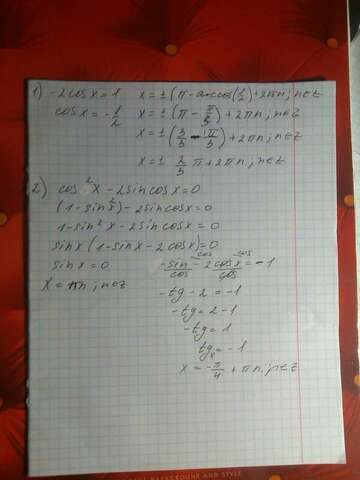 1) -2cosx=1 x=±(π-arccos(1/2)+2πn; n∈z
cosx=-1/2 x=±(π-π/3)+2πn; n∈z
x=±(3/3-1π/3)+2πn; n∈z
x=±2/3π+2πn; n∈z
2) cos²x-2sincosx=0
(1-sin²x)-2sincosx=0
1-sin²x-2sincosx=0
sinx(1-sinx-2cosx)=0
sinx=0 -sin/cos-2cosx/cos=-1
x=πn; n∈z -tg-2=-1
-tg=2-1
-tg=1
tgx=-1
x=-π/4+πn; n∈z
AND STYLE